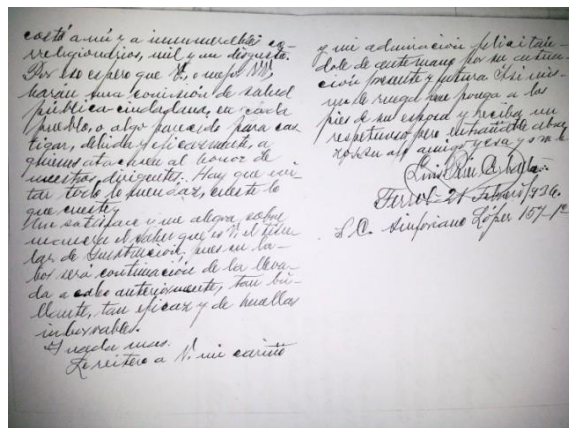 costó a mí y a innumerables co-
rreligionarios, mil y un disgusto.
Por eso espero que V., o mejor VV,
harán una comisión de salud
pública-ciudadana, en cada
pueblo, o algo parecido para cas
tigar, debida y eficazmente, a
quienes atacasen al honor de
nuestros dirigentes. Hay que evi
tar todo lo mendaz, cueste lo
que cueste.
Me satisface y me alegra sobre
manera el saber que es V. el titu
lar de Instrucción, pues su la-
bor será continuación de la lleva-
da a cabo anteriormente, tan bri-
llante, tan eficaz y de huellas
imborrables.
Y nada mas.
Le reitero a V. mi cariño
y mi admiración felicitán-
dole de antemano por su actua-
ción presente y futura. Asi mis-
mo le ruego me ponga a los
pies de su esposa y reciba un
respetuoso pero entrañable abra
zo de su afmo amigo
Luis
Ferrol - 21 Febrero 1936.
S. C. Sinforiano López 157-1º